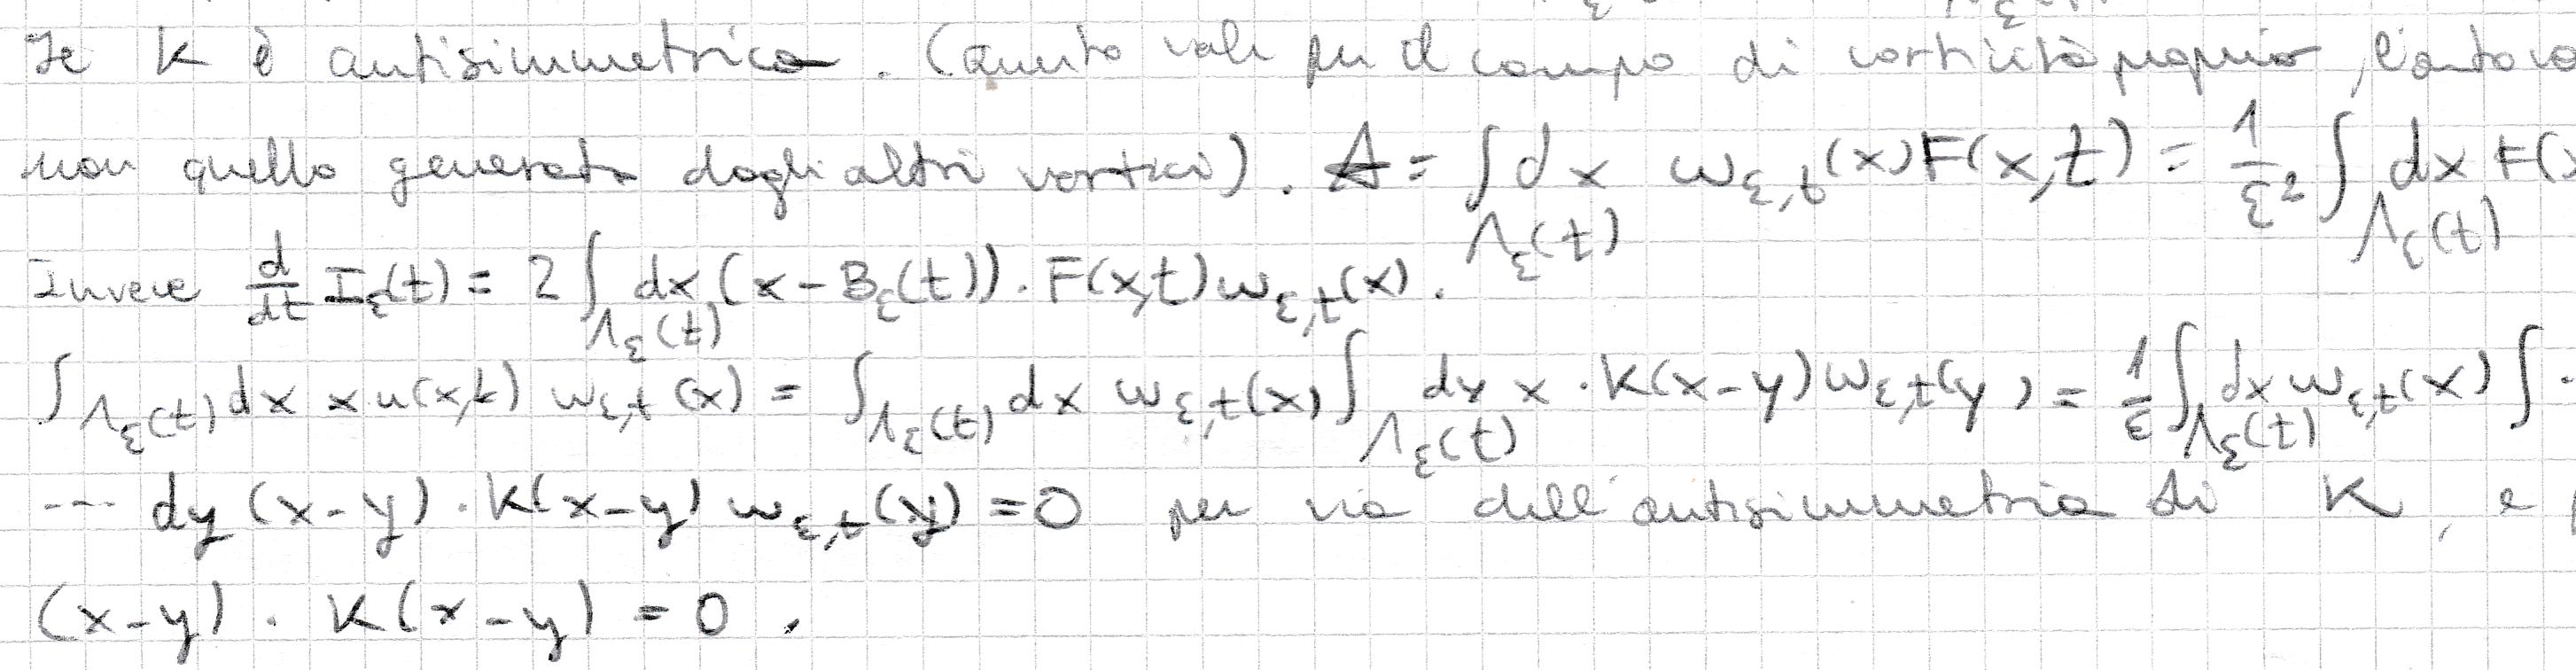 Se K è antisimmetrica. (Questo vale per il campo di vorticità proprio, l'auto
non quello generato dagli altri vortici). A = ∫_{Λ_ε(t)} dx ω_{ε,t}(x)F(x,t) = 1/ε² ∫_{Λ_ε(t)} dx F(x
Invece d/dt I_ε(t) = 2∫_{Λ_ε(t)} dx (x-B_ε(t))·F(x,t)ω_{ε,t}(x).
∫_{Λ_ε(t)} dx x u(x,t) ω_{ε,t}(x) = ∫_{Λ_ε(t)} dx ω_{ε,t}(x) ∫_{Λ_ε(t)} dy x·K(x-y)ω_{ε,t}(y) = 1/ε ∫_{Λ_ε(t)} dx ω_{ε,t}(x) ∫ ·
--- dy (x-y)·K(x-y) ω_{ε,t}(y) = 0 per via dell'antisimmetria di K, e
(x-y) · K(x-y) = 0 .